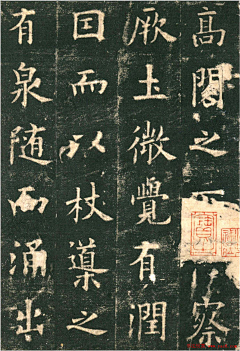 高閣之察
厥土微覺有潤
囙而以杖導之
有泉随而涌出